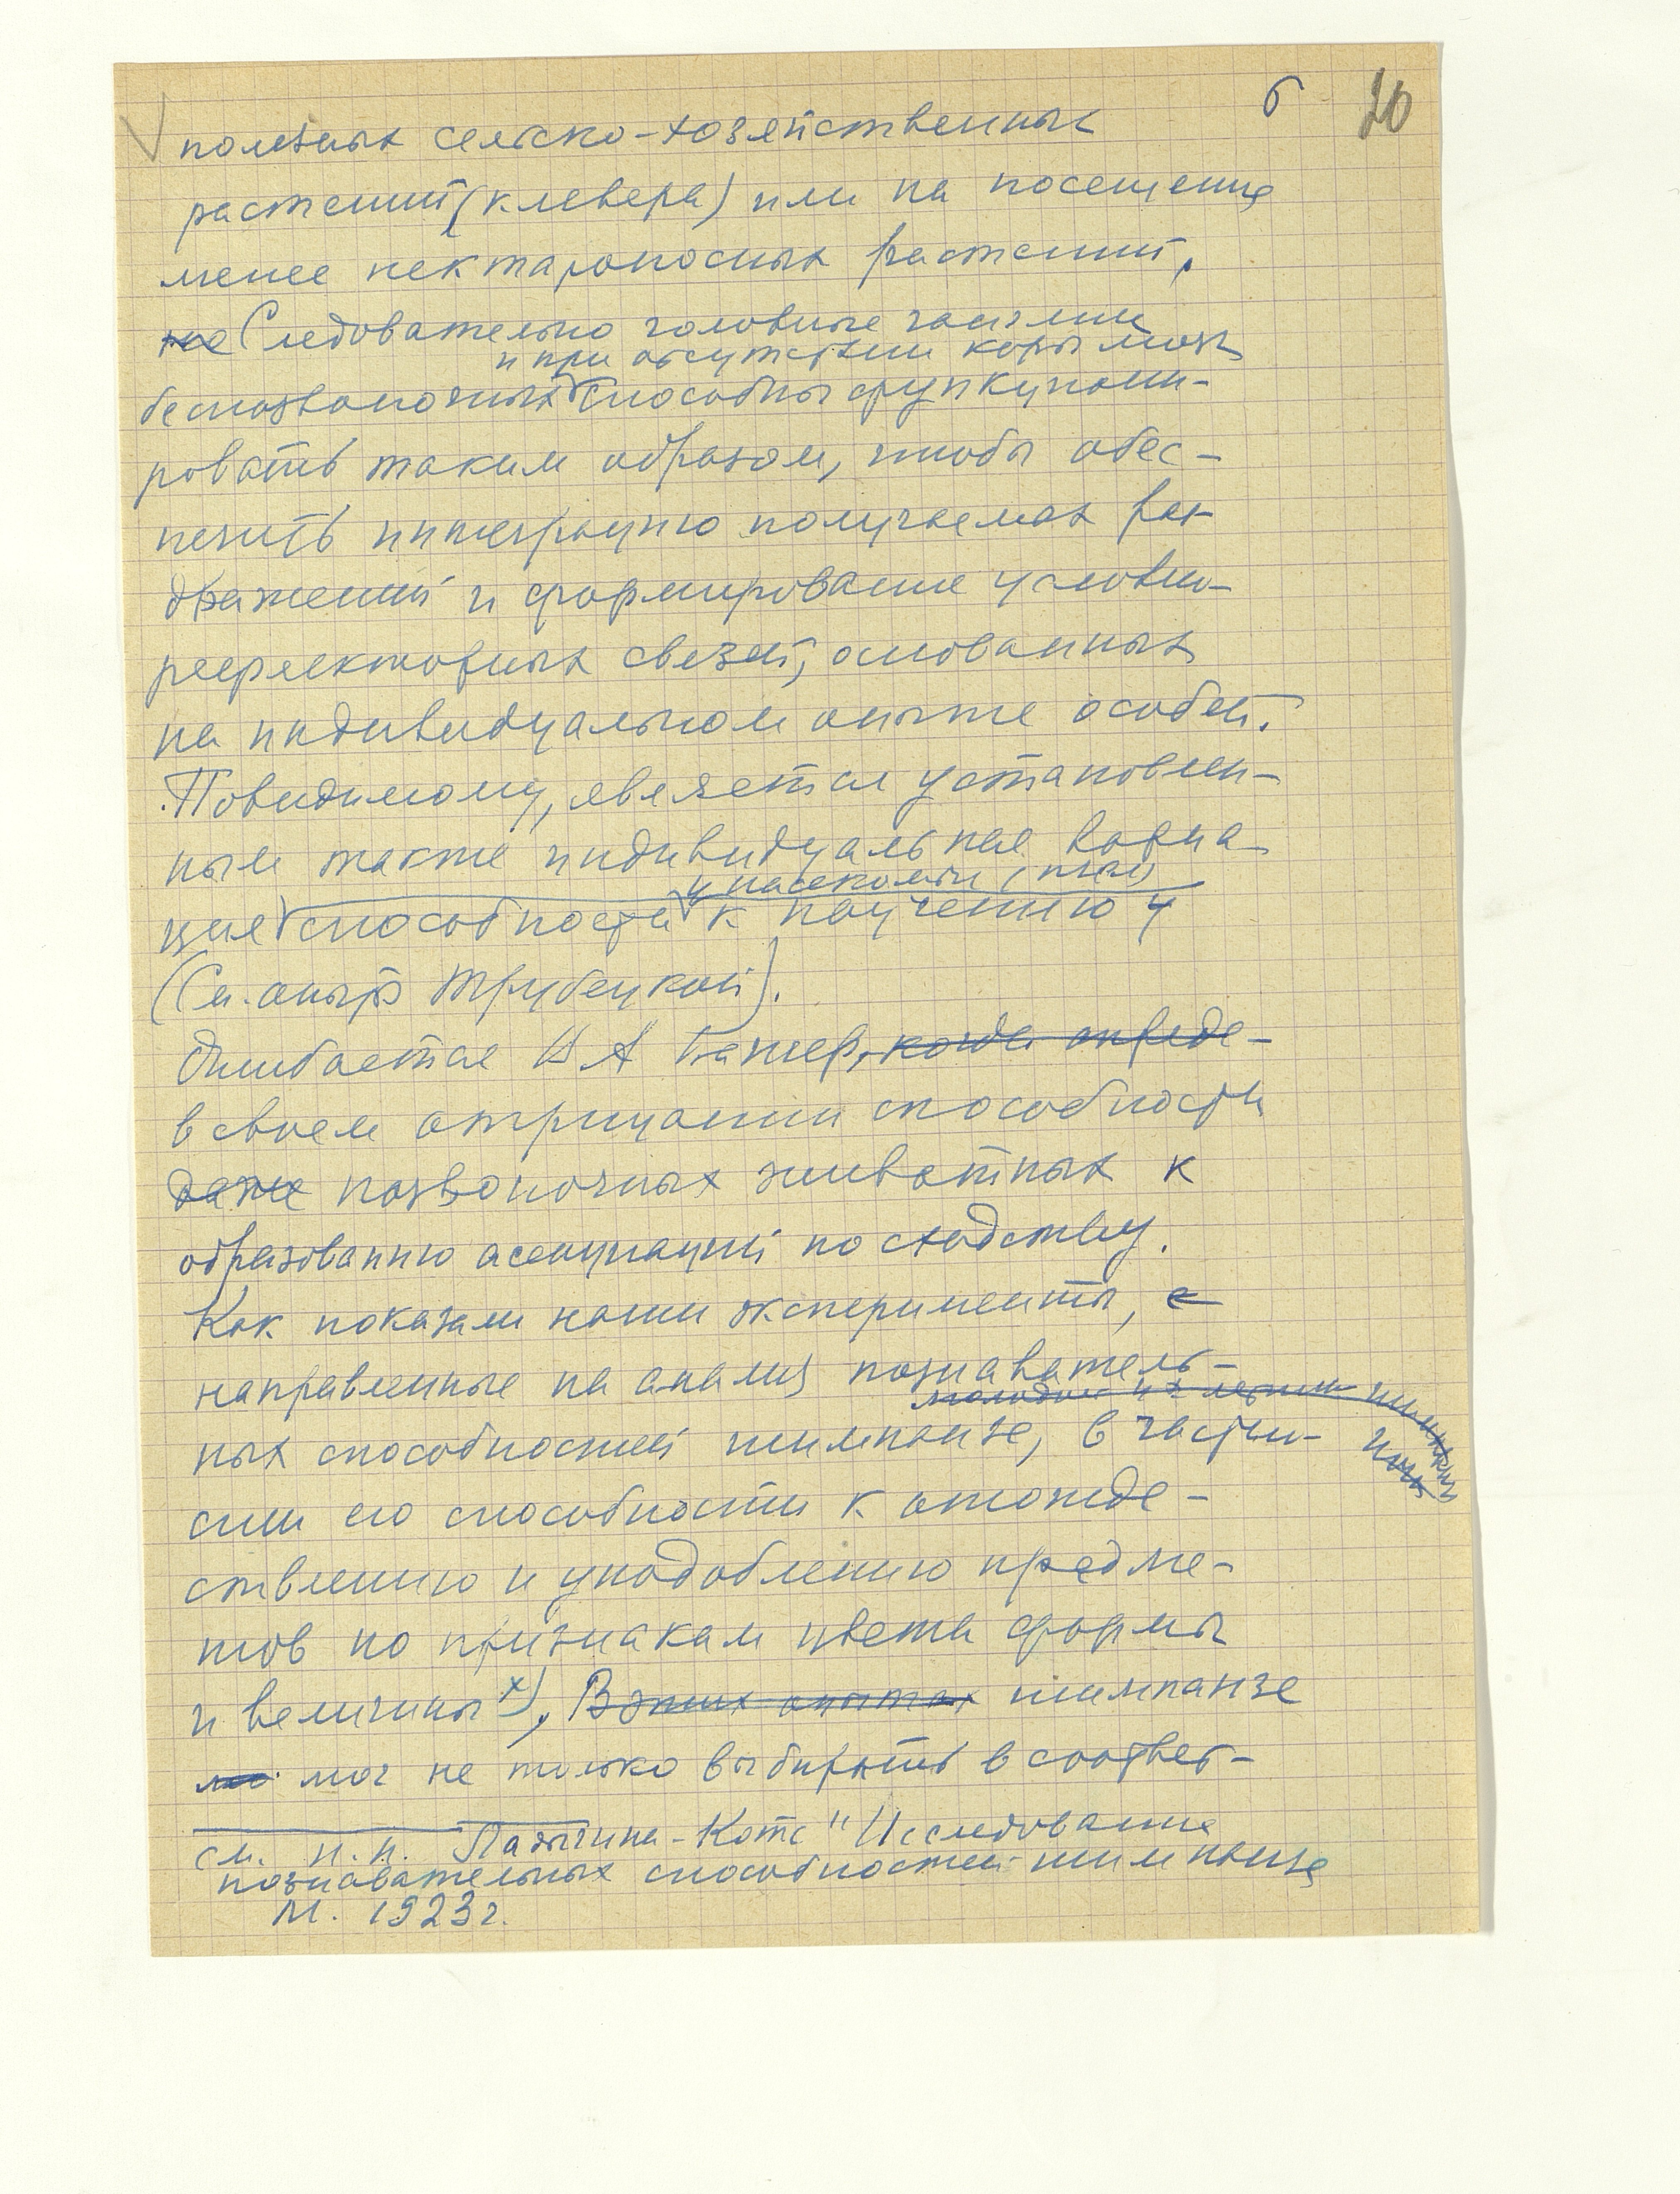 б 20
полезных сельско-хозяйственных
растений (клевера) или на посещение
менее нектароносных растений.
Следовательно головные ганглии
и при отсутствии коры мозга
беспозвоночных способны функциони-
ровать таким образом, чтобы обес-
печить интеграцию получаемых раз-
дражений и формирование условно-
рефлекторных связей, основанных
на индивидуальном опыте особей.
Повидимому, является установлен-
ным также индивидуальная вариа-
у насекомых (пчел)
ция способности к научению у
(См. опыты Трубецкой).
Ошибается В А Вагнер, когда опреде-
в своем отрицании способности
даже позвоночных животных к
образованию ассоциаций по сходству.
Как показали наши эксперименты, с
направленные на анализ познаватель-
ных способностей шимпанзе, в частно-
сти его способности к отожде-
ствлению и уподоблению предме-
тов по признакам цвета формы
и величины х), В этих опытах шимпанзе
мог не только выбирать в соответ-
см. Н.Н. Ладыгина-Котс "Исследование
познавательных способностей шимпанзе
М. 1923 г.